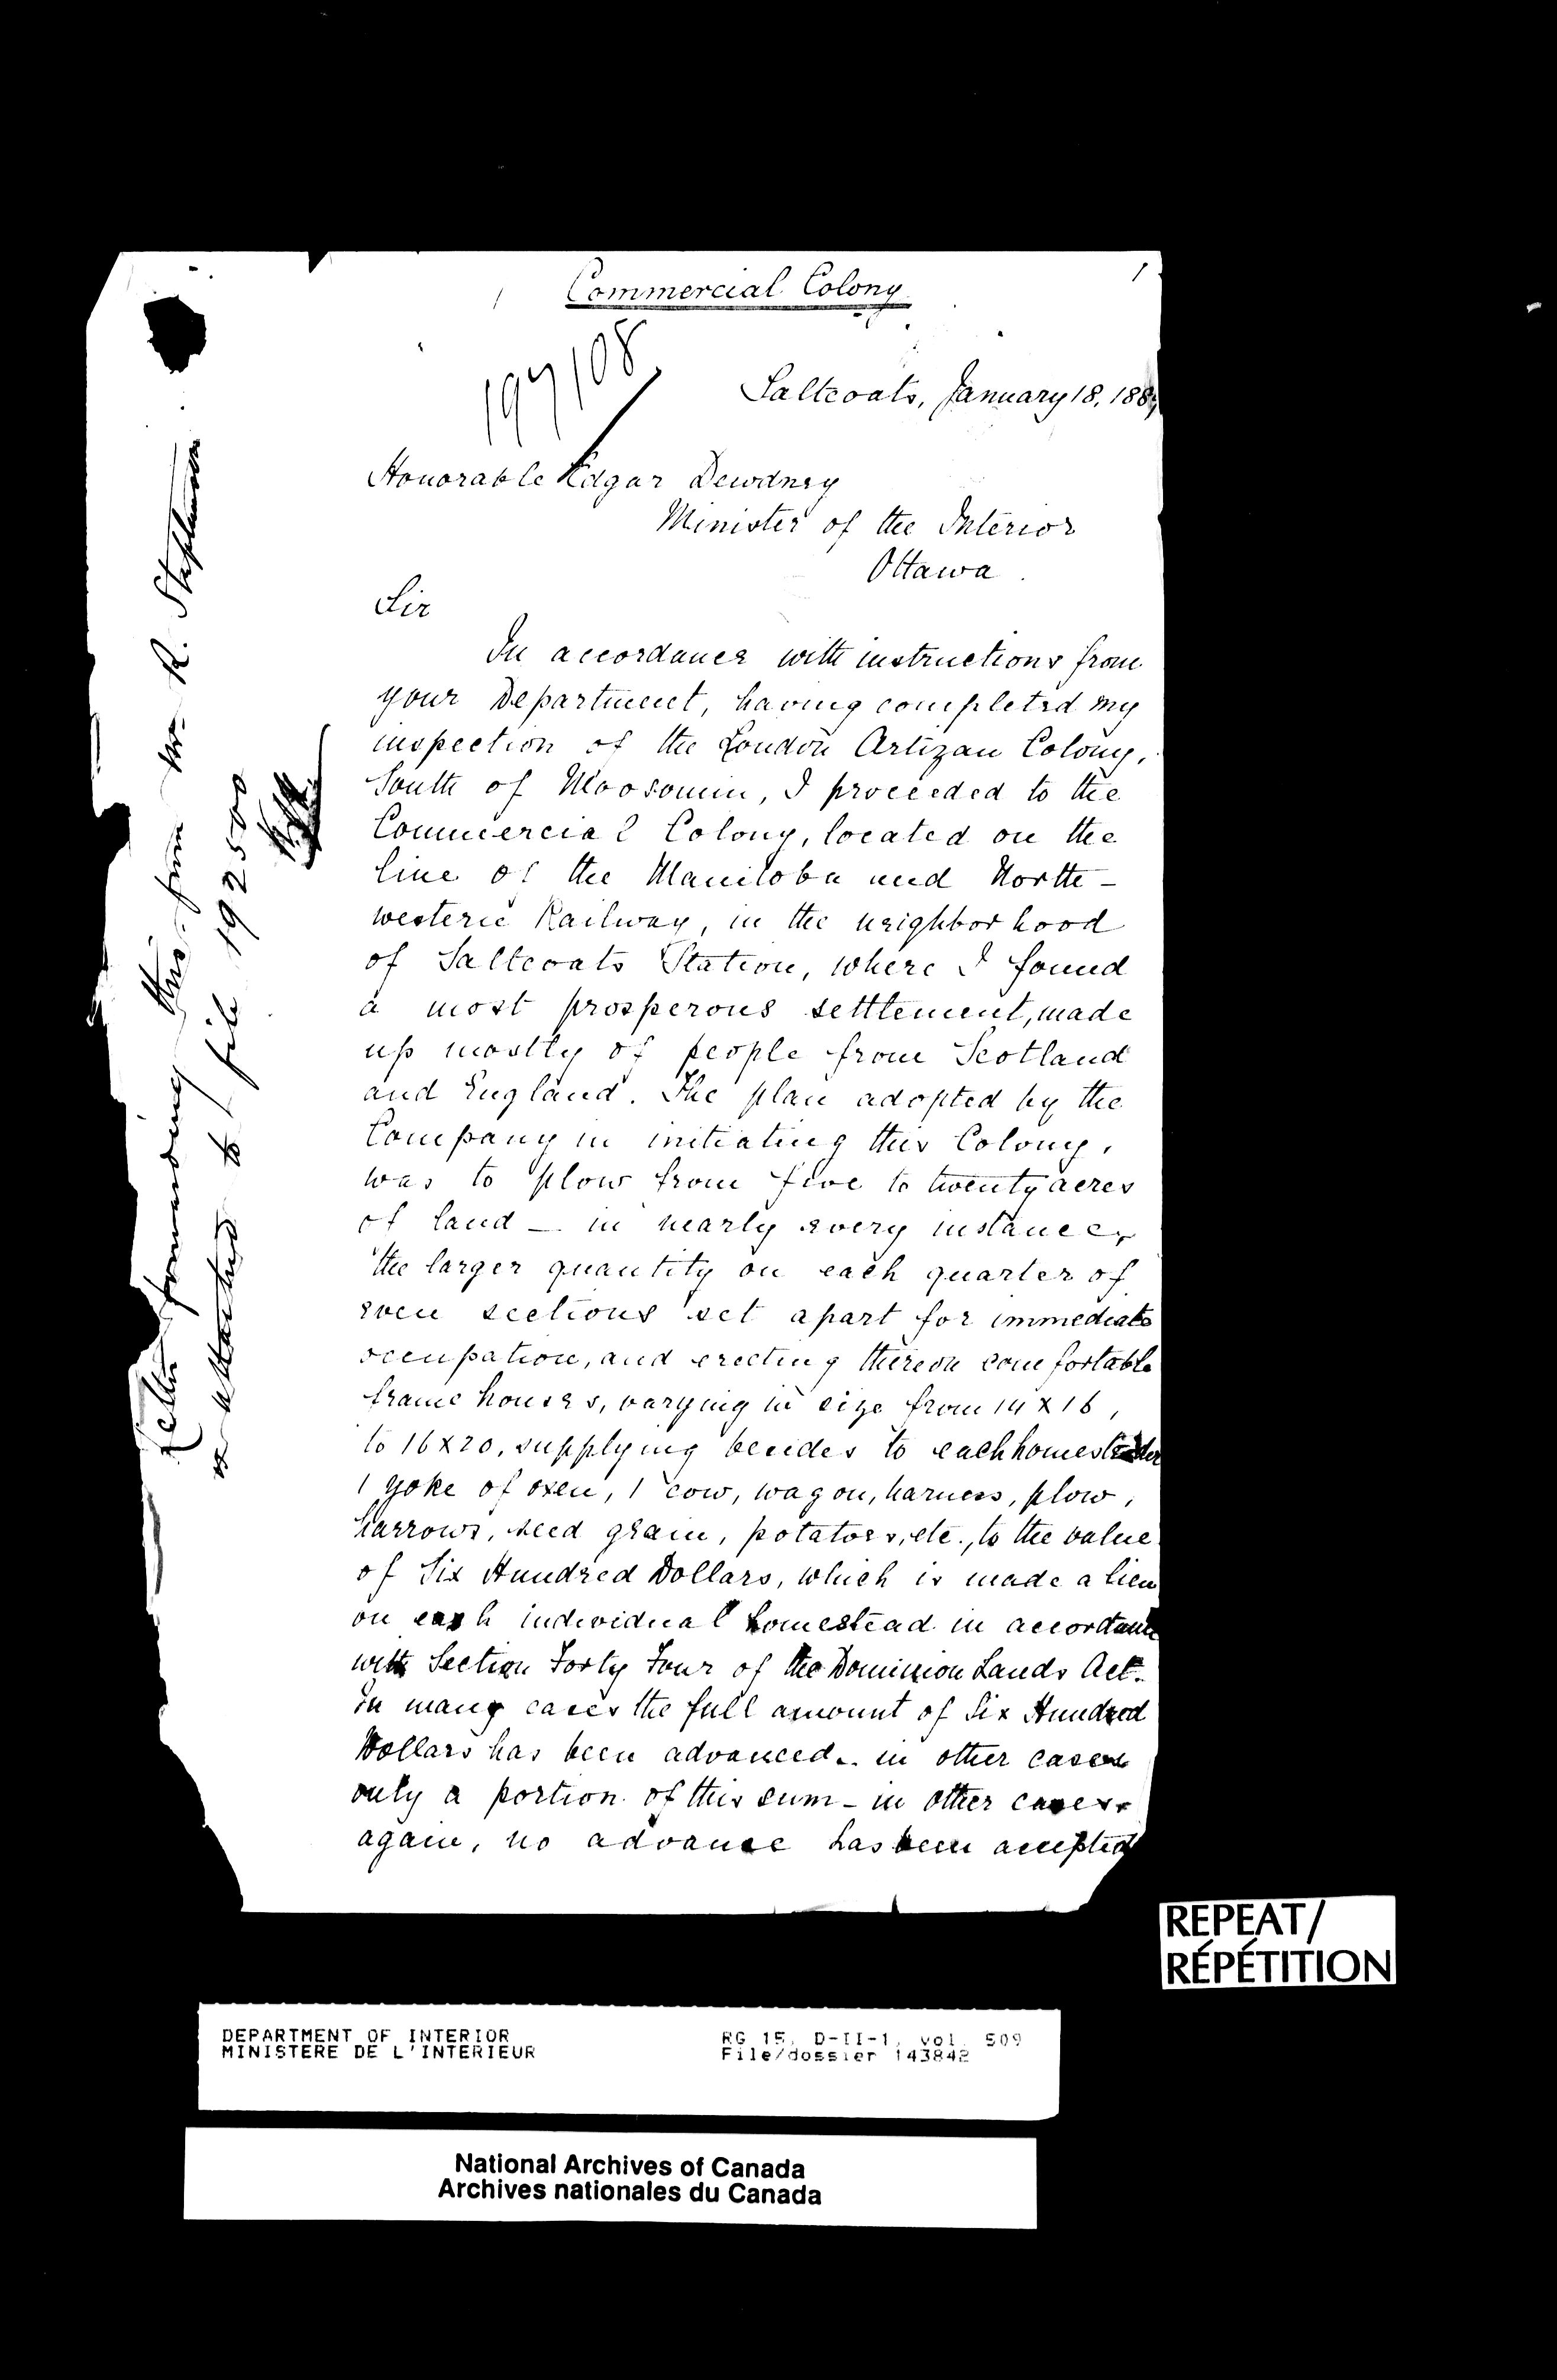 Commercial Colony
1
197108
Saltcoats, January 18, 1889
Honorable Edgar Dewdney
Minister of the Interior
Ottawa.
Sir
In accordance with instructions from
your Department, having completed my
inspection of the London Artizan Colony,
South of Moosomin, I proceeded to the
Commercial Colony, located on the
line of the Manitoba and North-
western Railway, in the neighborhood
of Saltcoats Station, where I found
a most prosperous setttement, made
up mostly of people from Scotland
and England. The plan adopted by the
Company in initiating this Colony,
was to plow from five to twenty acres
of land - in nearly every instance,
the larger quantity on each quarter of
even sections set apart for immediate
occupation, and erecting thereon comfortable
frame houses, varying in size from 14 x 16,
to 16 x 20, supplying besides to each homesteader
1 yoke of oxen, 1 cow, wagon, harness, plow,
harrows, seed grain, potatoes, etc., to the value
of Six Hundred Dollars, which is made a lien
on each individual homestead in accordance
with Section Forty Four of the Dominion Lands Act.
In many cases the full amount of Six Hundred
Dollars has been advanced - in other cases
only a portion of this sum - in other cases
again, no advance has been accepted
Letter forwarding this from Mr. R. Stephenson
is attached to file 192500
REPEAT/
RÉPÉTITION
DEPARTMENT OF INTERIOR
MINISTERE DE L'INTERIEUR
RG 15, D-II-1, vol. 509
File/dossier 143842
National Archives of Canada
Archives nationales du Canada